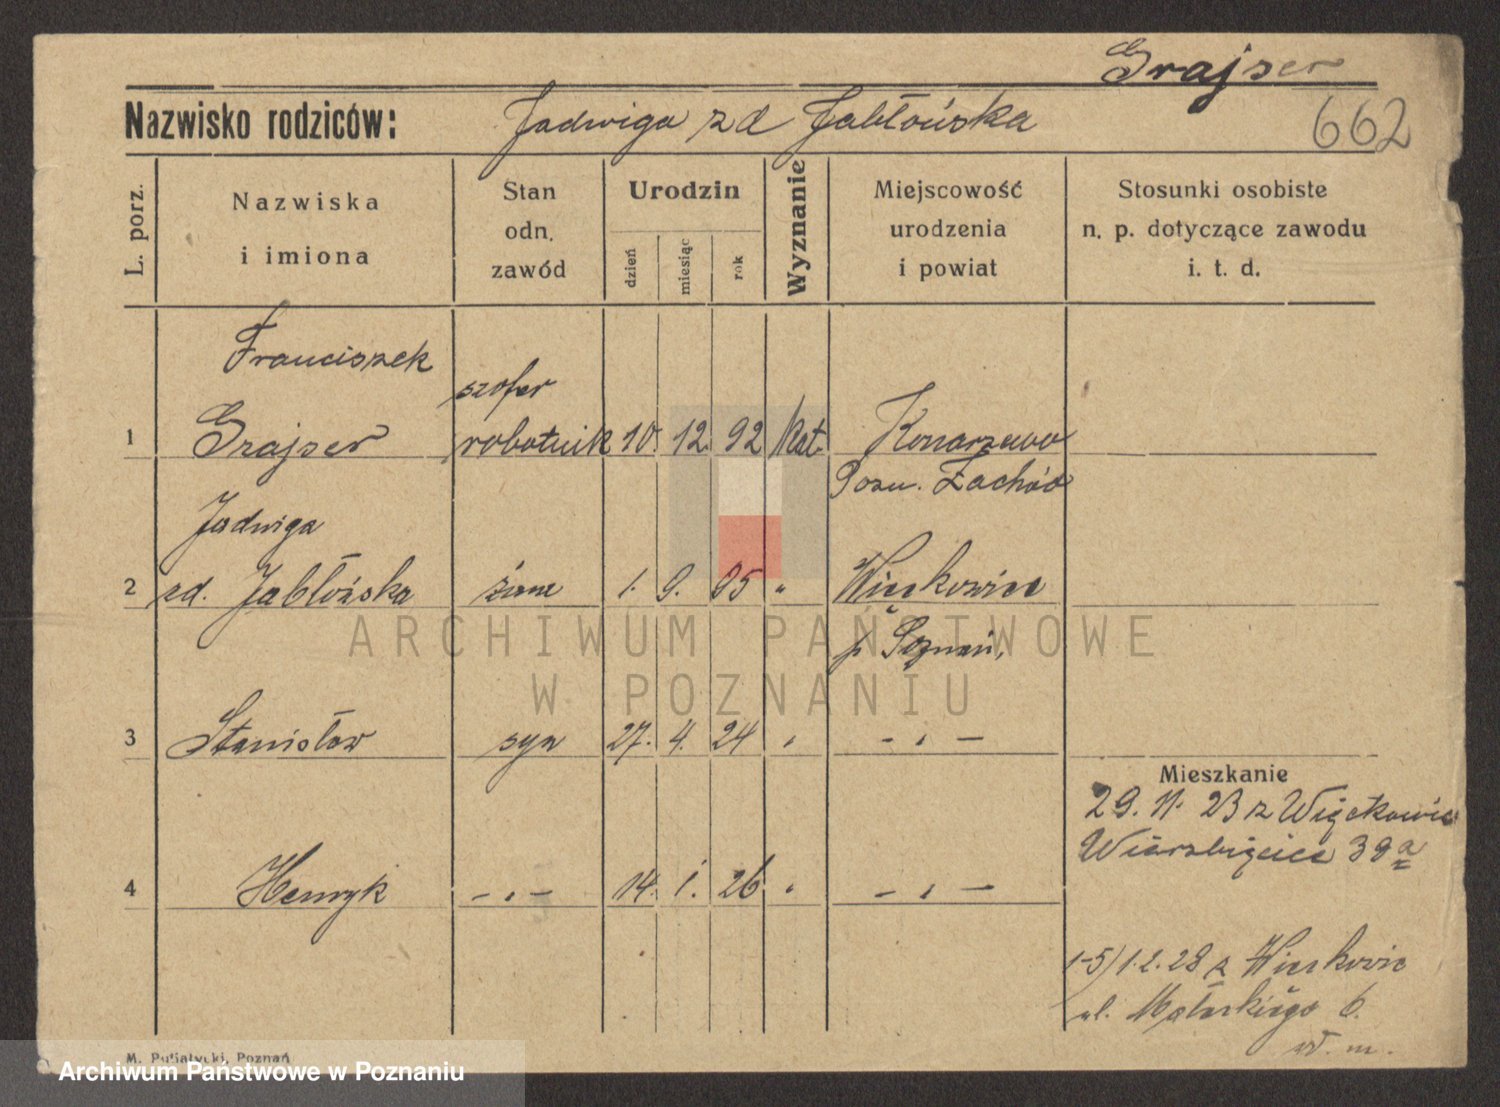 Grajser
Nazwisko rodziców: Jadwiga zd Jabłońska
662
L. porz.
Nazwiska i imiona
Stan odn. zawód
Urodzin
dzień miesiąc rok
Wyznanie
Miejscowość urodzenia i powiat
Stosunki osobiste n. p. dotyczące zawodu i. t. d.
Franciszek
szofer
1 Grajser robotnik 10. 12 92 kat. Konarzewo
Pozn. Zachód
Jadwiga
2 zd. Jabłońska żona 1. 9. 95 " Więckowice
p. Poznań,
ARCHIWUM PAŃSTWOWE
W POZNANIU
3 Stanisław syn 27. 4. 24 " - " -
Mieszkanie
29. 11. 23 z Więckowic
Wierzbięcice 39a
4 Henryk - " - 14. 1. 26 " - " -
1-5) 1.2.28 z Więckowic
ul. 6.
w. m.
M. Putiatycki, Poznań
Archiwum Państwowe w Poznaniu